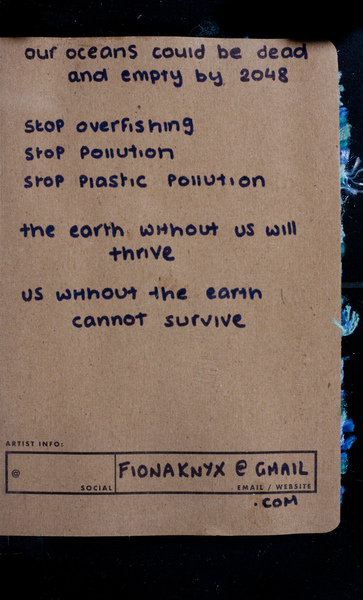 our oceans could be dead
and empty by 2048
stop overfishing
stop pollution
stop plastic pollution
the earth without us will
thrive
us without the earth
cannot survive
ARTIST INFO:
@
SOCIAL
FIONAKNYX @ GMAIL
EMAIL / WEBSITE
.COM